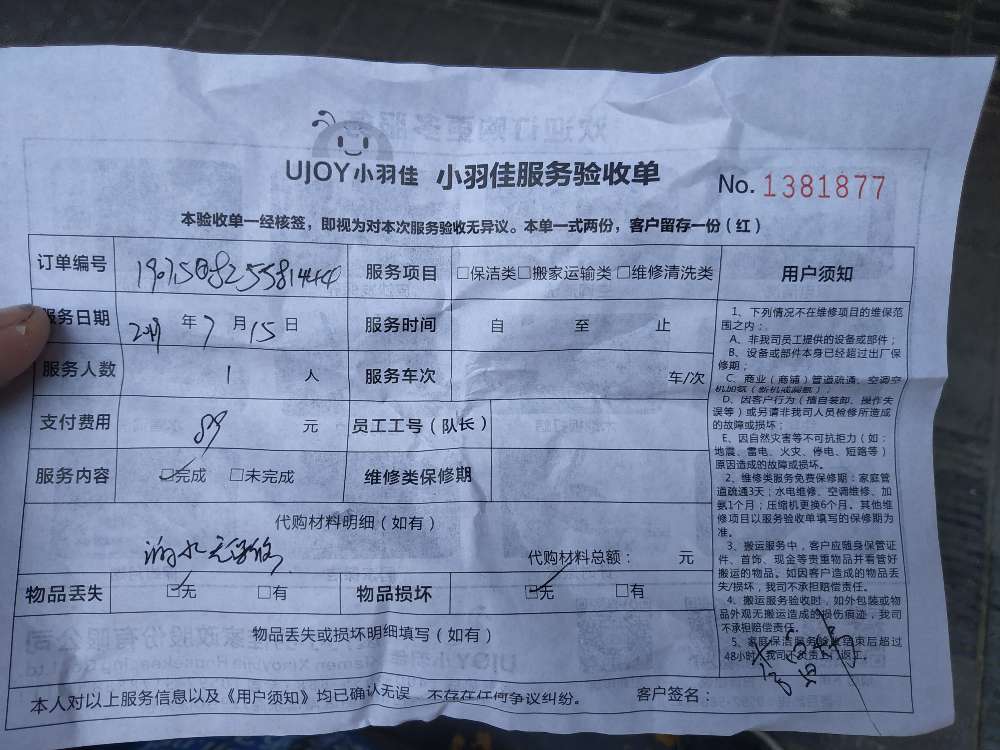 UJOY小羽佳 小羽佳服务验收单 No. 1381877
本验收单一经核签，即视为对本次服务验收无异议。本单一式两份，客户留存一份（红）
订单编号 服务项目 □保洁类□搬家运输类□维修清洗类
服务日期 年 7 月 15 日 服务时间 自 至 止
服务人数 1 人 服务车次 车/次
支付费用 89 元 员工工号（队长）
服务内容 □完成 □未完成 维修类保修期
代购材料明细（如有）
代购材料总额： 元
物品丢失 □无 □有 物品损坏 □无 □有
物品丢失或损坏明细填写（如有）
本人对以上服务信息以及《用户须知》均已确认无误，不存在任何争议纠纷。 客户签名：
用户须知
1、下列情况不在维修项目的维保范
围之内：
A、非我司员工提供的设备或部件；
B、设备或部件本身已经超过出厂保
修期；
C、商业（商铺）管道疏通、空调空
D、因客户行为（擅自装卸、操作失
误等）或另请非我司人员检修所造成
的故障或损坏；
E、因自然灾害等不可抗拒力（如：
地震、雷电、火灾、停电、短路等）
原因造成的故障或损坏。
2、维修类服务免费保修期：家庭管
道疏通3天；水电维修、空调维修、加
氨1个月；压缩机更换6个月。其他维
修项目以服务验收单填写的保修期为
准。
3、搬运服务中，客户应随身保管证
件、首饰、现金等贵重物品并看管好
搬运的物品。如因客户造成的物品丢
失/损坏，我司不承担赔偿责任。
4、搬运服务验收时，如外包装或物
品外观无搬运造成的损伤痕迹，我司
不承担赔偿责任。
5、家庭保洁服务验收结束后超过
48小时，我司不负责上门返工。